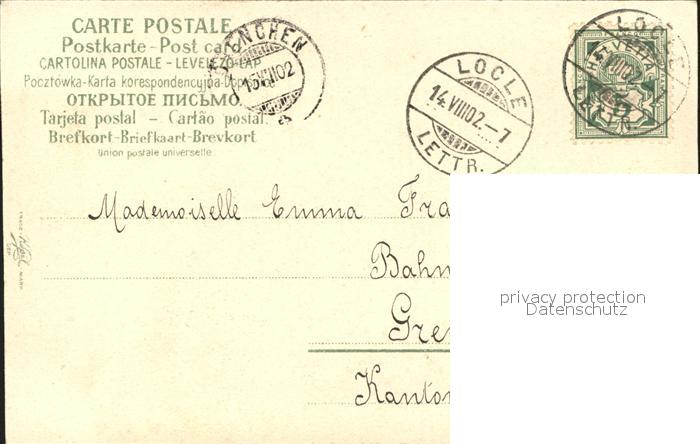 CARTE POSTALE
Postkarte - Post card
CARTOLINA POSTALE - LEVELEZÖ-LAP
Pocztówka-Karta korespondencyjna-Dopisnice
ОТКРЫТОЕ ПИСЬМО.
Tarjeta postal - Cartão postal.
Brefkort-Briefkaart-Brevkort
Union postale universelle.
NCHEN
15 VIII 02
LOCLE
14.VIII 02.-7
LETTR.
LOCLE
14.VIII 02.-7
LETTR.
HELVETIA
Mademoiselle Emma Fra
Bahn
Gre
Kanton
privacy protection
Datenschutz
TRADE
MARK